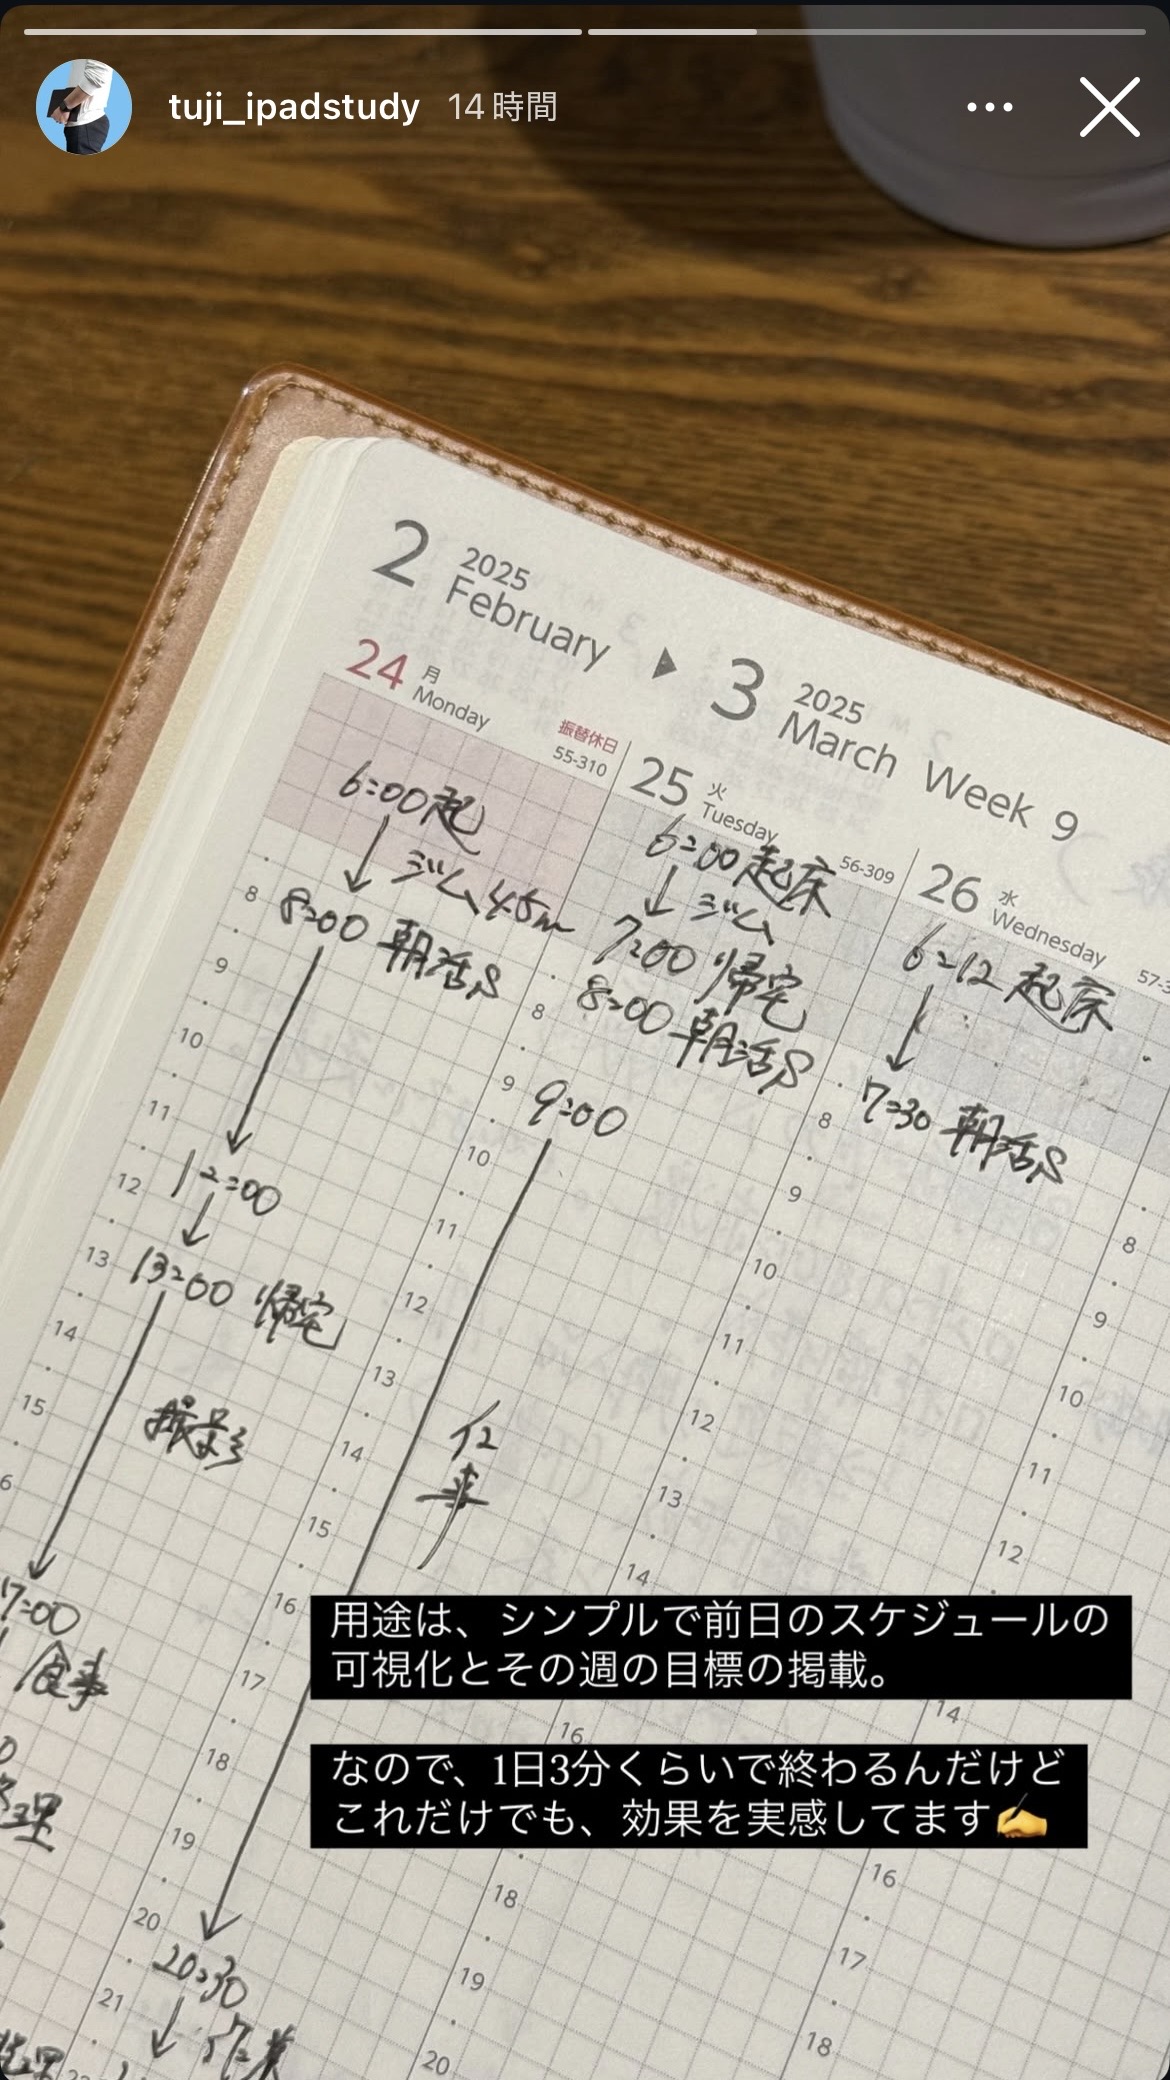 tuji_ipadstudy 14時間
2 2025 February ▶ 3 2025 March Week 9
24 月 Monday 振替休日 55-310
6:00起
ジム45m
8:00 朝活S
12:00
13:00 帰宅
撮影
17:00
食事
理
8
9
10
11
12
13
14
15
6
25 火 Tuesday 56-309
6:00起床
ジム
7:00 帰宅
8:00 朝活S
9:00
仕事
20:30
作業
8
9
10
11
12
13
14
15
16
17
18
19
20
21
26 水 Wednesday 57-3
6:12 起床
7:30 朝活S
8
9
10
11
12
13
14
16
18
19
20
8
9
10
11
12
14
16
17
18
用途は、シンプルで前日のスケジュールの
可視化とその週の目標の掲載。
なので、1日3分くらいで終わるんだけど
これだけでも、効果を実感してます✍️